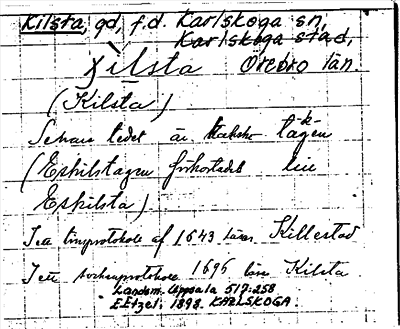 Kilsta, gd, f.d. Karlskoga sn,
Karlskoga stad,
Kilsta Örebro län.
(Kilsta)
Senare ledet är
(Eskilstagen förkortadt
Eskilsta)
I ett tingprotokoll af 1643 läses Killestad
I ett sockenprotokoll 1696 läses Kilsta.
Landsm. Uppsala 517:258
E Etzel, 1898. KARLSKOGA.